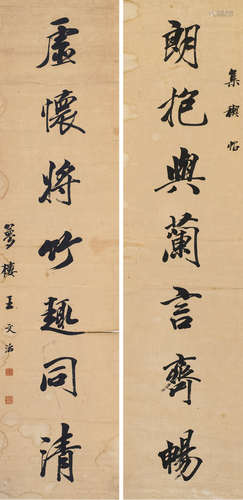 集禊帖
朗抱興蘭言齊暢
虛懷將竹趣同清
夢樓王文治